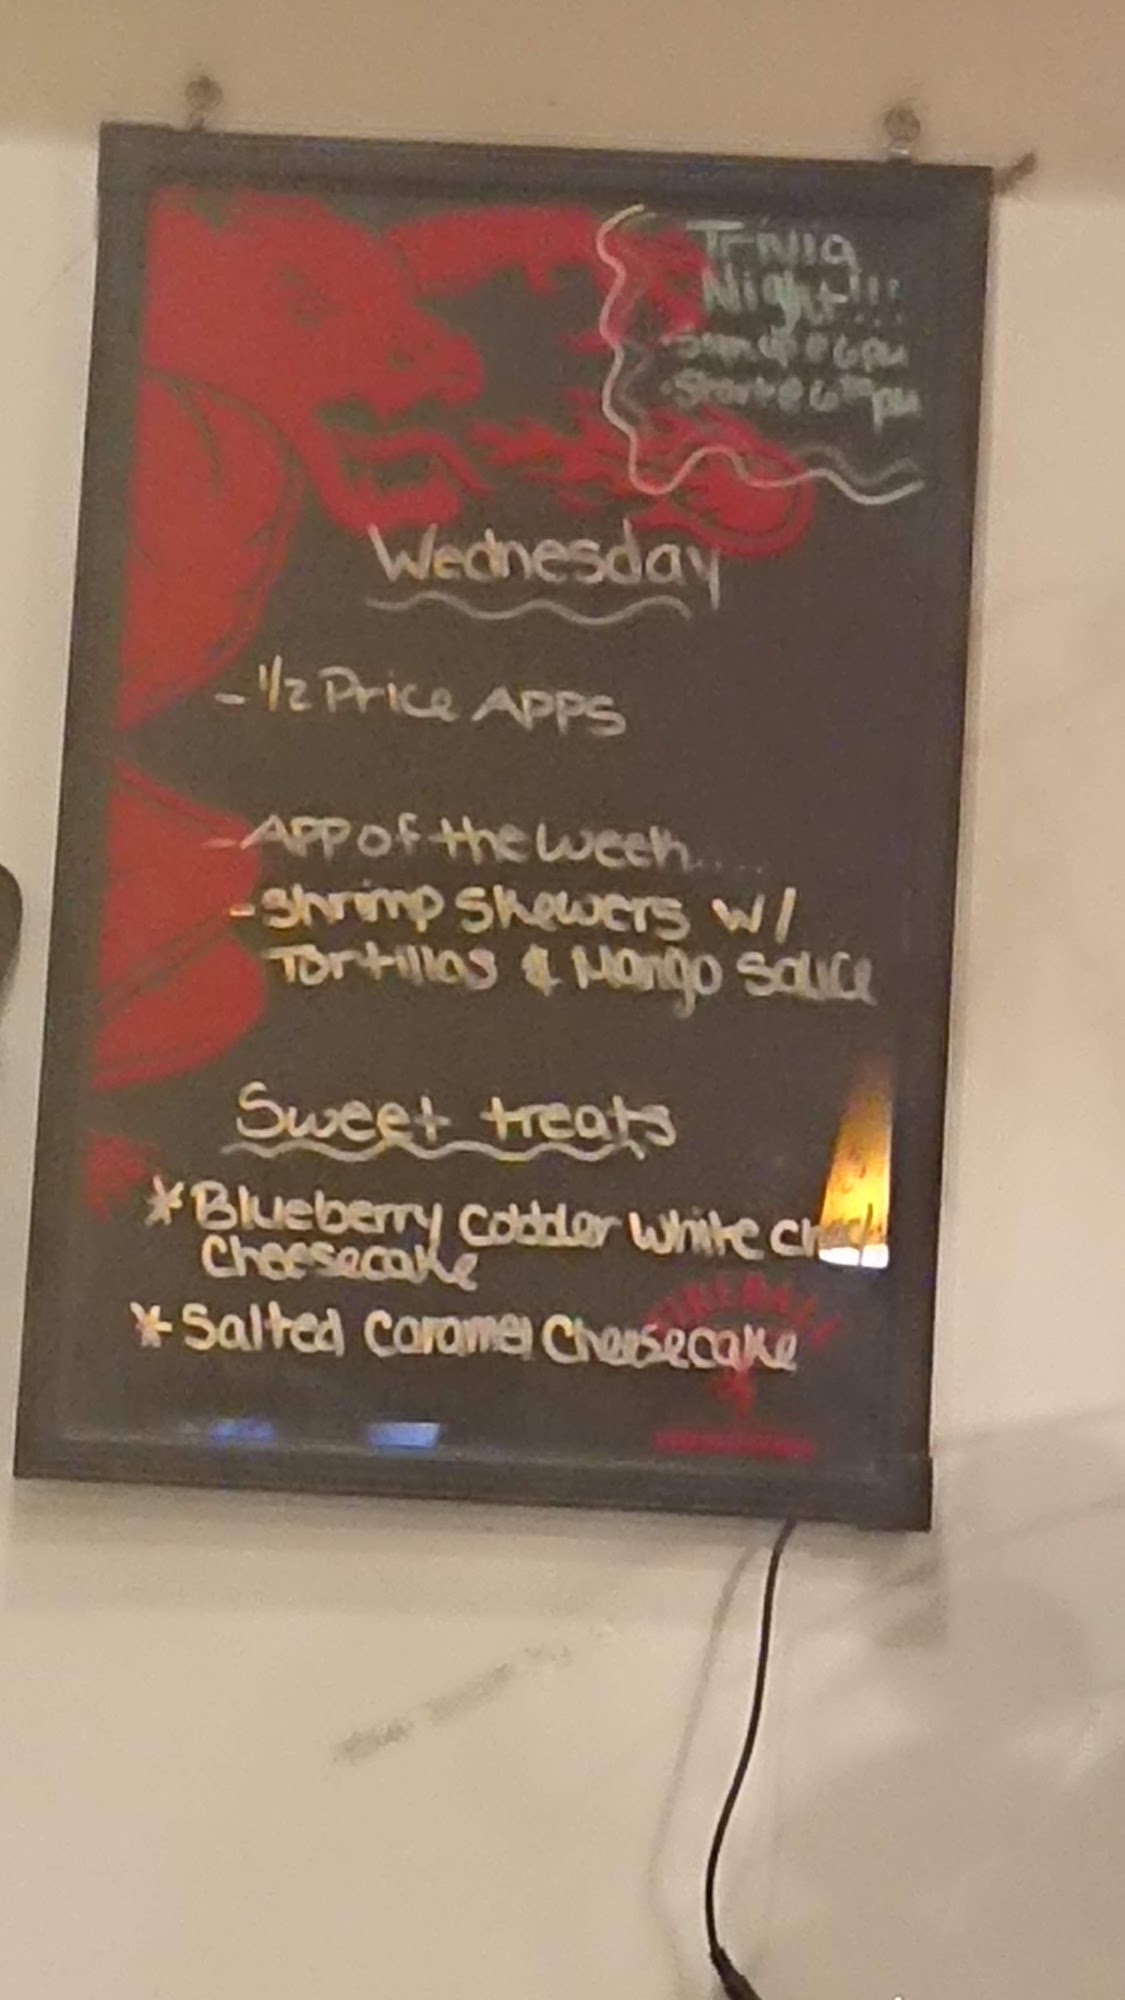 Trivia
Night!!!
• Sign up @ 6pm
• Start @ 6³⁰pm
Wednesday
- 1/2 Price APPS
- APP of the week.....
- Shrimp Skewers w/
Tortillas & Mango Sauce
Sweet treats
* Blueberry Cobbler White Choc
Cheesecake
* Salted Caramel Cheesecake
FIREBALL